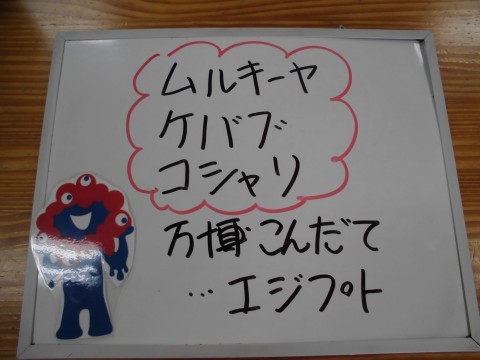 ムルキーヤ
ケバブ
コシャリ
万博こんだて
…エジプト